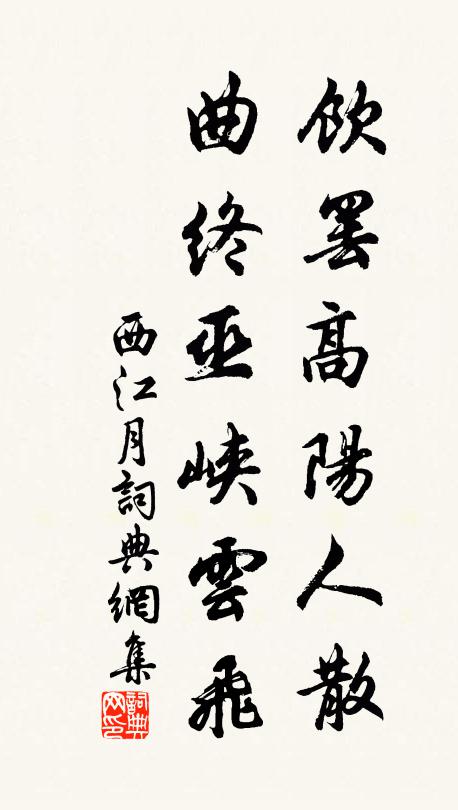 飲罷高陽人散
曲終巫峽雲飛
西江月詞典網集
詞典網印